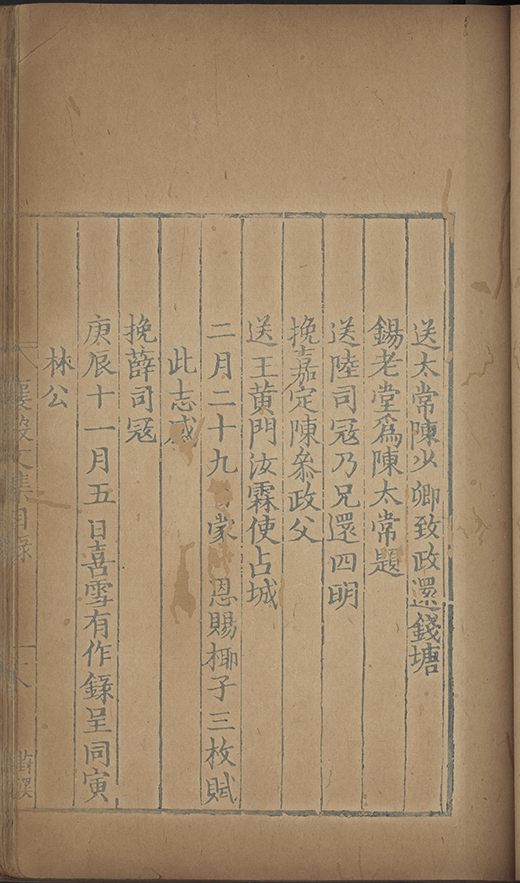 送太常陳少卿致政還錢塘
錫老堂爲陳太常題
送陸司冦乃兄還四明
挽嘉定陳叅政父
送王黄門汝霖使占城
二月二十九 蒙 恩賜揶子三枚賦
此志感
挽薛司冦
庚辰十一月五日喜雪有作錄呈同寅
林公
襄毅文集目錄